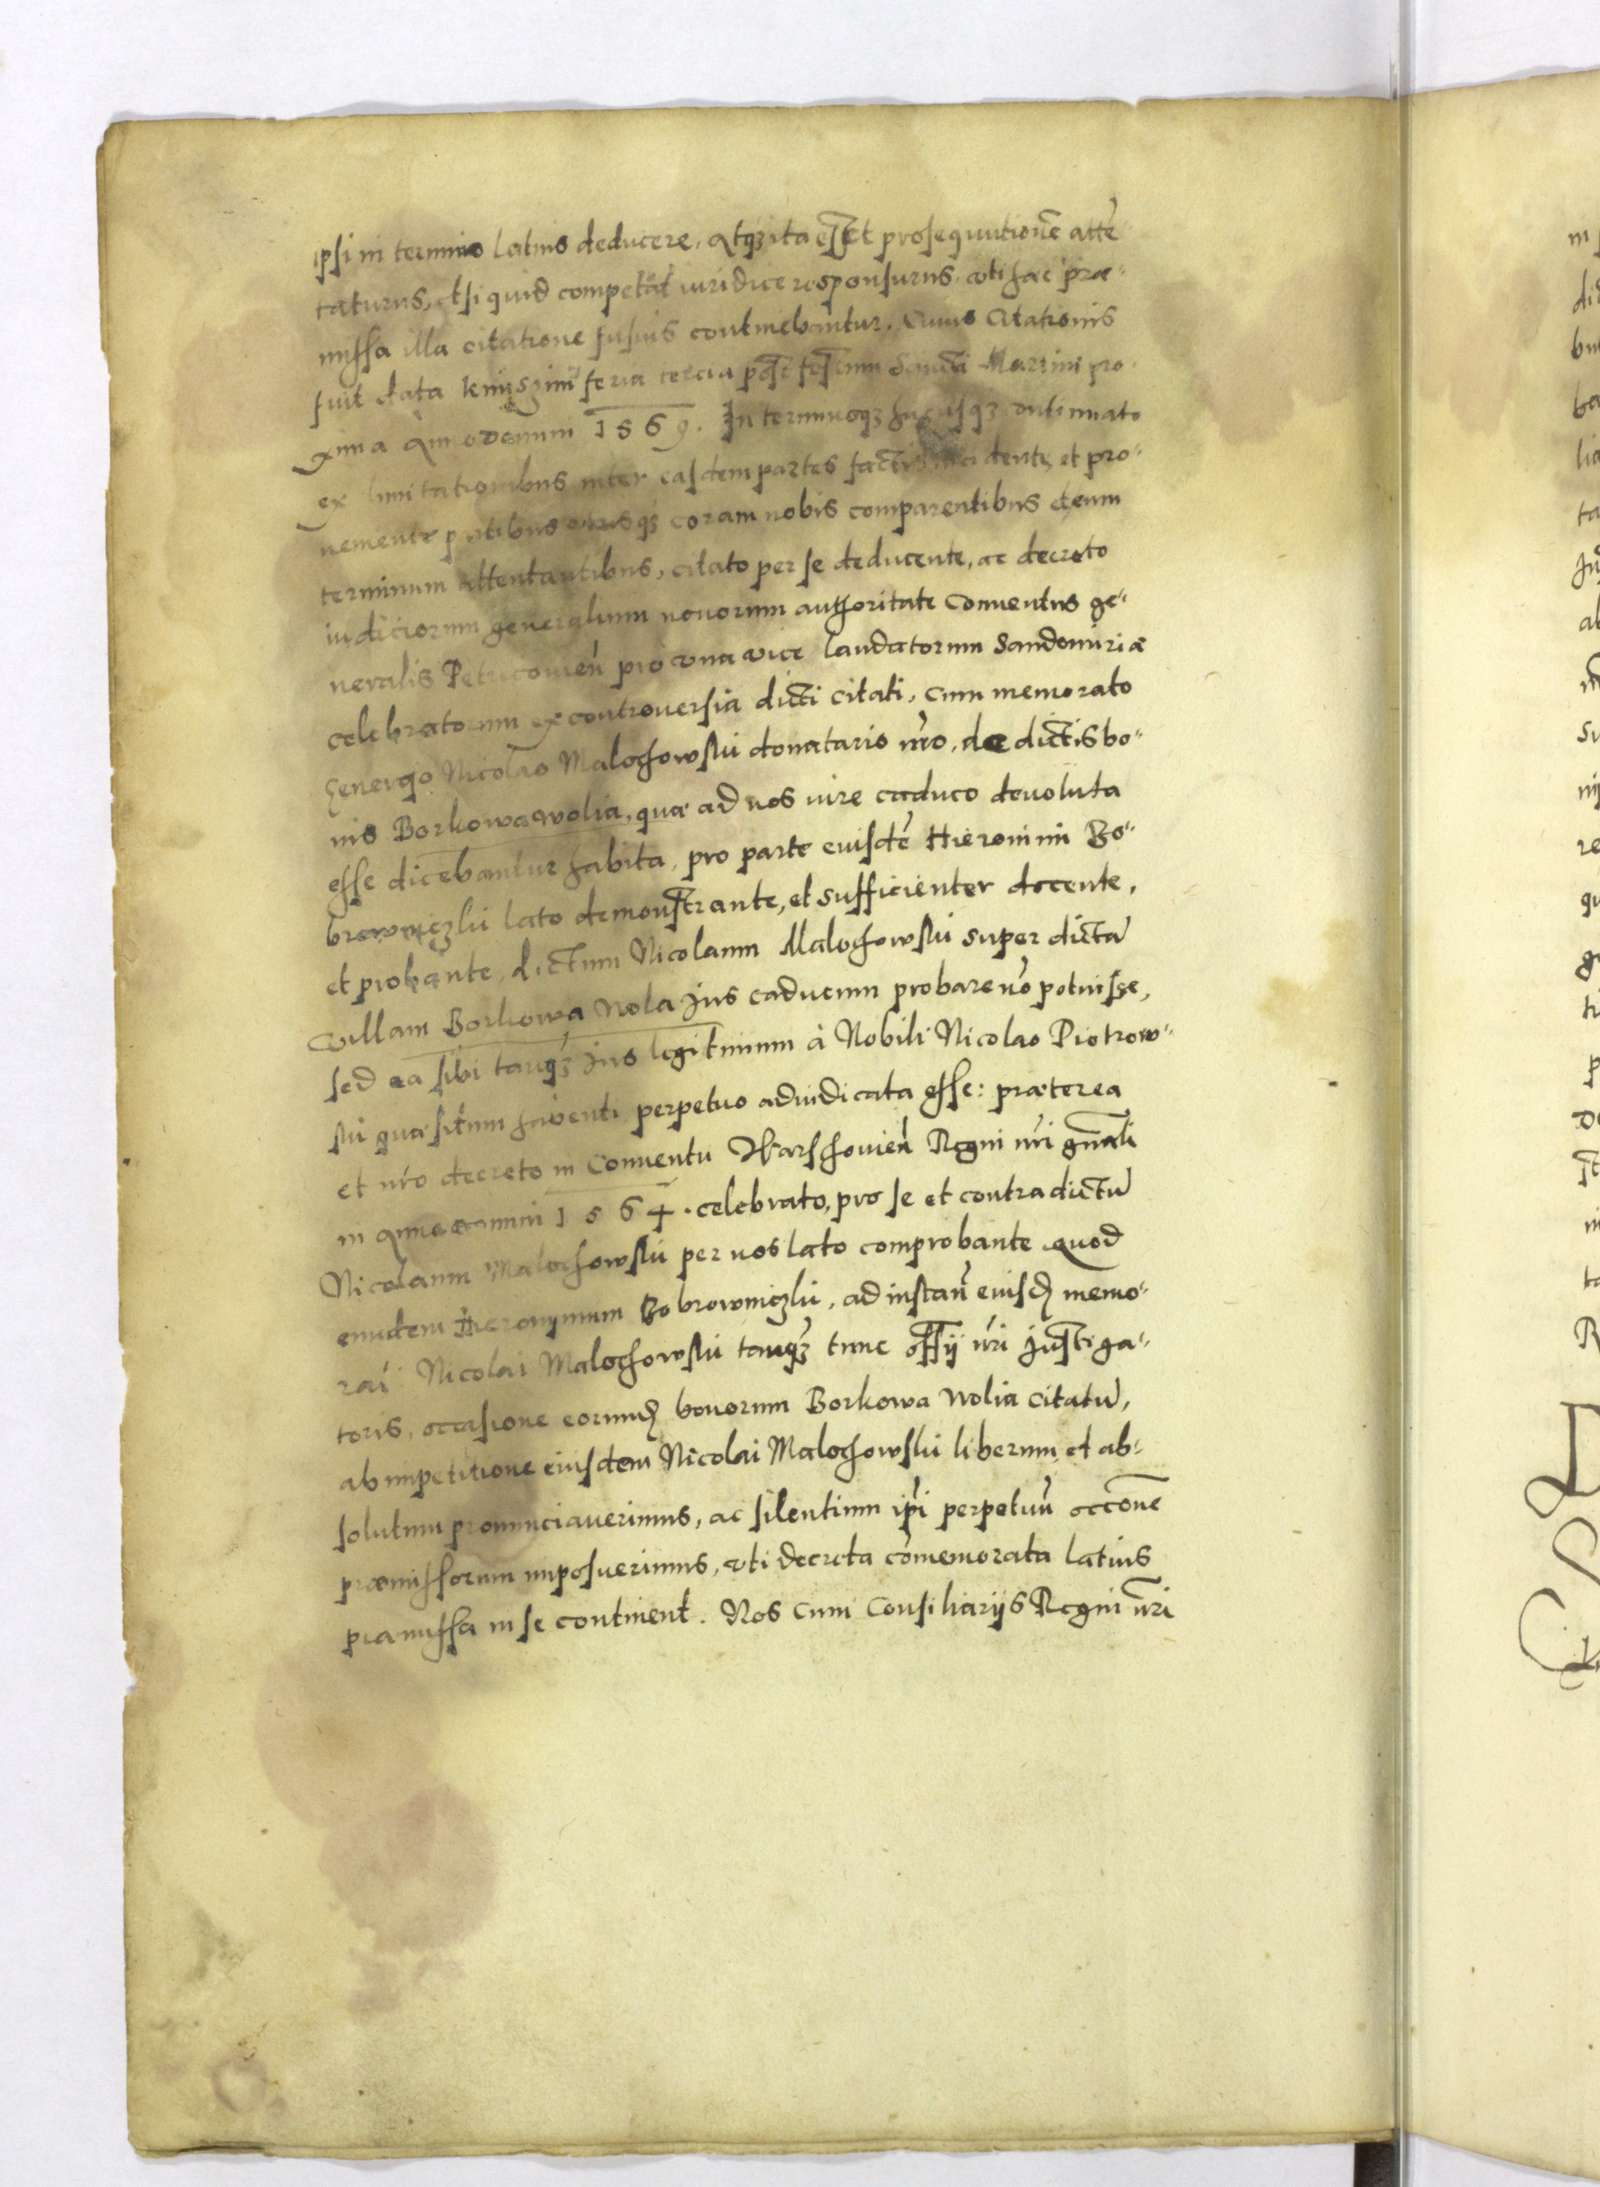 ipsi in termino latius deducere, atq3 ita esset prosequutionē attē-
taturus, et si quid competāt iuridice responsurus, vti hæc præ-
missa illa citatione fusius continebantur. Cuius citationis
fuit data Knijszini feria tercia post festum Sancti Martini pro-
xima Anno domini 1569. In terminoq3 huc usq3 continuato
ex limitationibus inter easdem partes factis incidente, et pro-
ueniente partibus utrisq3 coram nobis comparentibus et eum
terminum attentantibus, citato per se deducente, ac decreto
iudiciorum generalium nouorum authoritate Conuentus ge-
neralis Petricouień pro vna vice laudatorum Sandomiriæ
celebratorum ex controuersia dicti citati, cum memorato
Generoso Nicolao Malochowski donatario nro, de dictis bo-
nis Borkowawolia, quæ ad nos iure caduco deuoluta
esse dicebantur habita, pro parte eiusdē Hieronimi Bo-
browniczki lato demonstrante, et sufficienter docente,
et probante, dictum Nicolaum Malochowski super dictā
villam Borkowa Wola Jus caducum probare nō potuisse,
sed ea sibi tanq3 Jus legitimum à Nobili Nicolao Piotrow-
ski quæsitum habenti perpetuo adiudicata esse: præterea
et nro decreto in Conuentu Warschouień Regni nri gnali
in Anno domini 1564. celebrato, pro se et contra dictū
Nicolaum Malochowski per nos lato comprobante quod
eundem Hieronymum Bobrowniczki, ad instañ eiusd memo-
rati Nicolai Malochowski tanq3 tunc offij nri Justiga-
toris, occasione eorund bonorum Borkowa Wolia citatū,
ab impetitione eiusdem Nicolai Malochowski liberum et ab-
solutum pronunciauerimus, ac silentium ipi perpetuū occoñe
præmissorum imposuerimus, vti decreta cōmemorata latius
præmissa in se continent. Nos cum Consiliarijs Regni nri